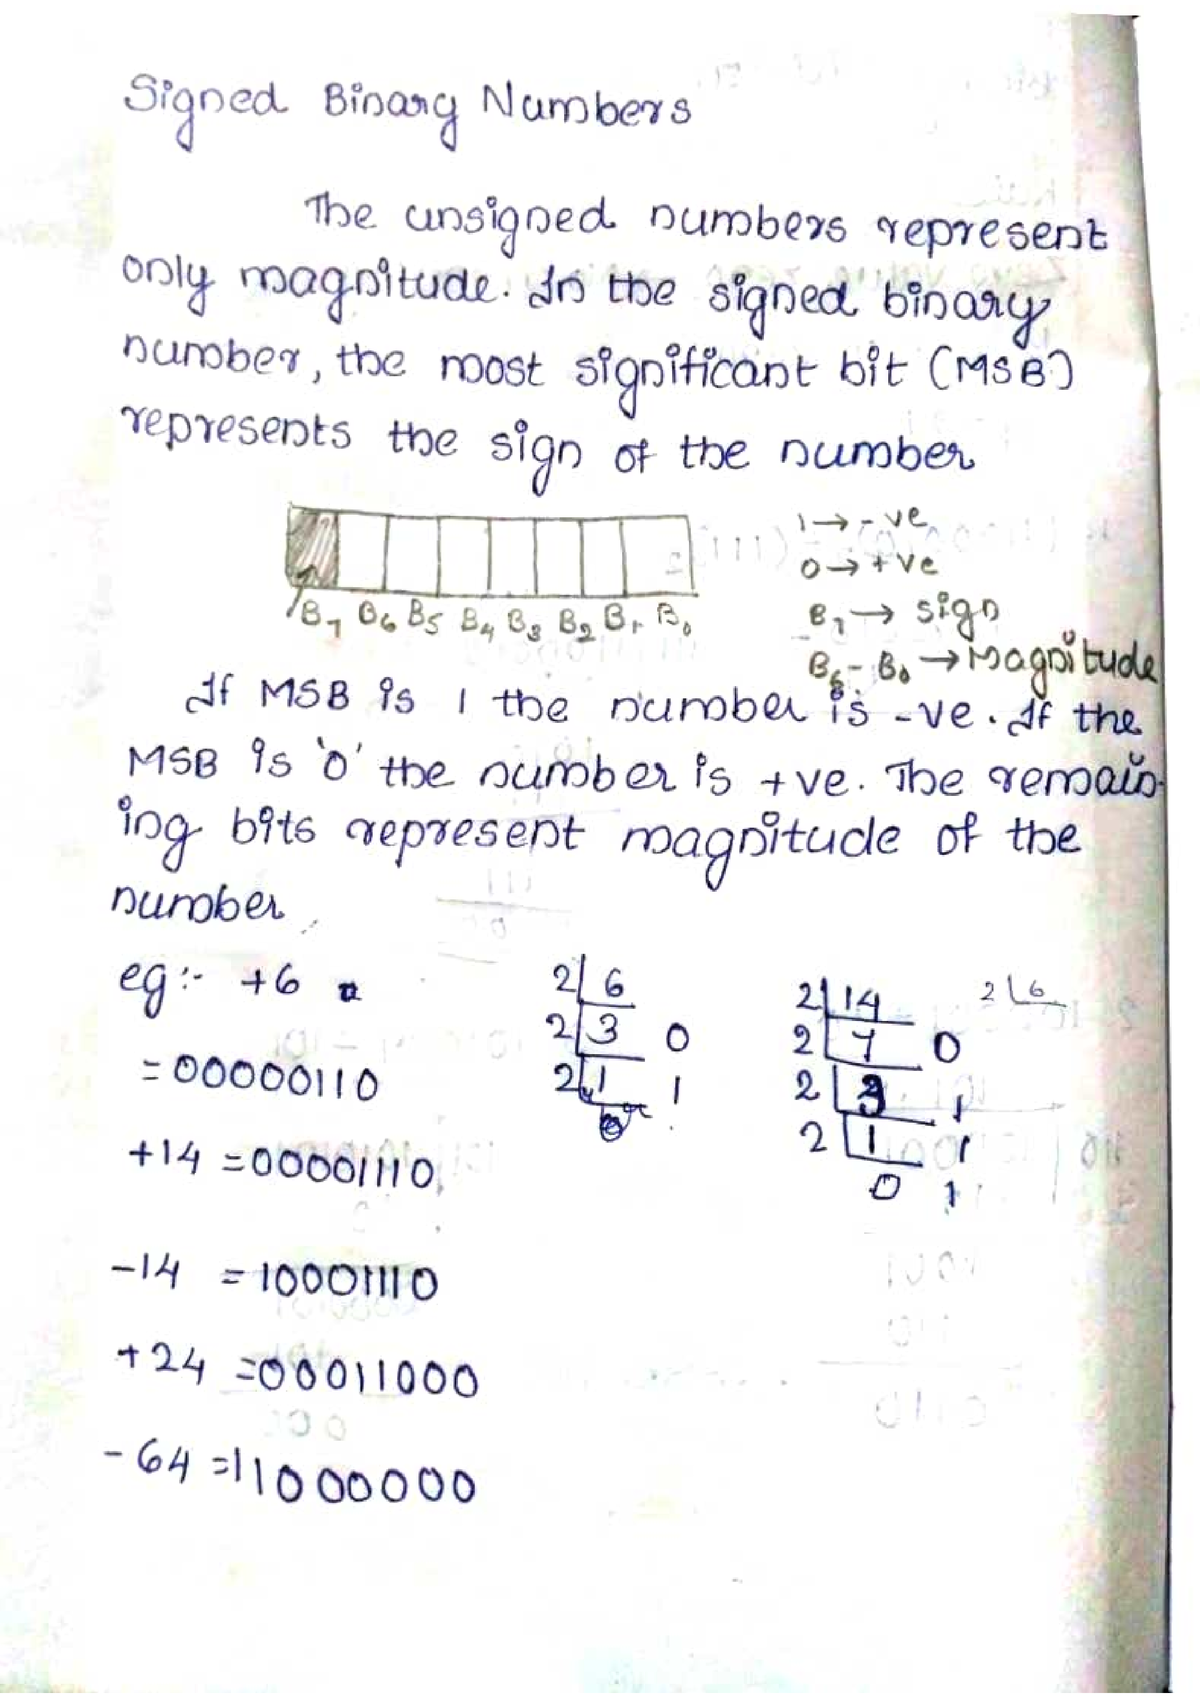 Signed Binary Numbers
The unsigned numbers represent
only magnitude. In the signed binary
number, the most significant bit (MSB)
represents the sign of the number
1 → -ve
0 → +ve
B7 → sign
B6 - B0 → Magnitude
B7 B6 B5 B4 B3 B2 B1 B0
If MSB is 1 the number is -ve. If the
MSB is '0' the number is +ve. The remain-
ing bits represent magnitude of the
number
eg:- +6
= 00000110
+14 = 00001110
-14 = 10001110
+24 = 00011000
-64 = 11000000
2 6
2 3 0
2 1 1
2 14
2 7 0
2 3 1
2 1 1
0 1
2 6